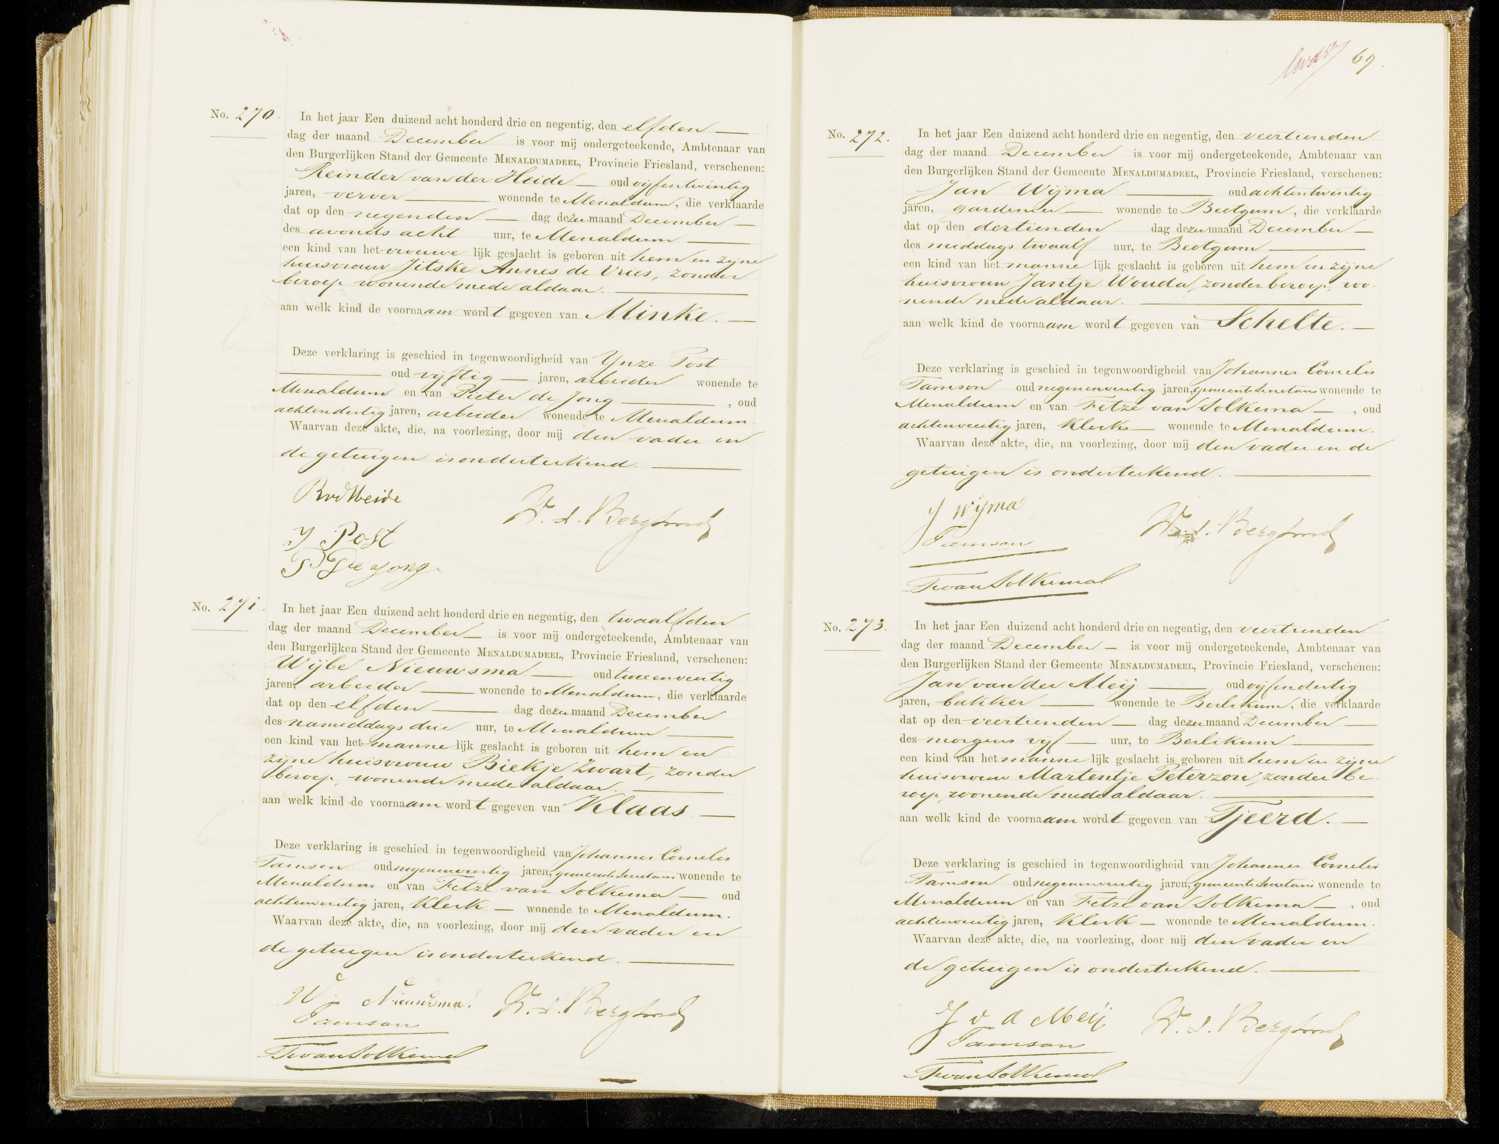 No. 270. In het jaar Een duizend acht honderd drie en negentig, den elfden
dag der maand December is voor mij ondergeteekende, Ambtenaar van
den Burgerlijken Stand der Gemeente MENALDUMADEEL, Provincie Friesland, verschenen:
Reinder van der Heide oud vijfentwintig
jaren, verver wonende te Menaldum, die verklaarde
dat op den negenden dag dezer maand December
des avonds acht uur, te Menaldum
een kind van het vrouwelijk geslacht is geboren uit hem en zijne
huisvrouw Jitske Annes de Vries, zonder
beroep wonende mede aldaar.
aan welk kind de voornaam wordt gegeven van Minke.
Deze verklaring is geschied in tegenwoordigheid van Ynze Post
oud vijftig jaren, arbeider wonende te
Menaldum en van Pieter de Jong, oud
achtendertig jaren, arbeider wonende te Menaldum.
Waarvan deze akte, die, na voorlezing, door mij den vader en
de getuigen is onderteekend.
RvdHeide
Y Post
P de Jong.
No. 271. In het jaar Een duizend acht honderd drie en negentig, den twaalfden
dag der maand December is voor mij ondergeteekende, Ambtenaar van
den Burgerlijken Stand der Gemeente MENALDUMADEEL, Provincie Friesland, verschenen:
Wijbe Nieuwsma oud tweeenveertig
jaren, arbeider wonende te Menaldum, die verklaarde
dat op den elfden dag dezer maand December
des namiddags drie uur, te Menaldum
een kind van het mannelijk geslacht is geboren uit hem en
zijne huisvrouw Biekje Zwart, zonder
beroep, wonende mede aldaar.
aan welk kind de voornaam wordt gegeven van Klaas
Deze verklaring is geschied in tegenwoordigheid van Johannes Cornelis
Tamson oud negenenveertig jaren, gemeente Secretaris wonende te
Menaldum en van Fetze van Solkema oud
achtenveertig jaren, Klerk wonende te Menaldum.
Waarvan deze akte, die, na voorlezing, door mij den vader en
de getuigen is onderteekend.
W Nieuwsma
Tamson
FvanSolkema
69.
No. 272. In het jaar Een duizend acht honderd drie en negentig, den veertienden
dag der maand December is voor mij ondergeteekende, Ambtenaar van
den Burgerlijken Stand der Gemeente MENALDUMADEEL, Provincie Friesland, verschenen:
Jan Wijma oud achtentwintig
jaren, gardenier wonende te Beetgum, die verklaarde
dat op den dertienden dag dezer maand December
des middags twaalf uur, te Beetgum
een kind van het mannelijk geslacht is geboren uit hem en zijne
huisvrouw Jantje Wouda, zonder beroep, wo-
nende mede aldaar.
aan welk kind de voornaam wordt gegeven van Schelte.
Deze verklaring is geschied in tegenwoordigheid van Johannes Cornelis
Tamson oud negenenveertig jaren, gemeente Secretaris wonende te
Menaldum en van Fetze van Solkema, oud
achtenveertig jaren, Klerk wonende te Menaldum.
Waarvan deze akte, die, na voorlezing, door mij den vader en de
getuigen is onderteekend.
J Wijma
Tamson
FvanSolkema
No. 273. In het jaar Een duizend acht honderd drie en negentig, den veertienden
dag der maand December is voor mij ondergeteekende, Ambtenaar van
den Burgerlijken Stand der Gemeente MENALDUMADEEL, Provincie Friesland, verschenen:
Jan van der Meij oud vijfendertig
jaren, bakker wonende te Berlikum, die verklaarde
dat op den veertienden dag dezer maand December
des morgens vijf uur, te Berlikum
een kind van het mannelijk geslacht is geboren uit hem en zijne
huisvrouw Martentje Peterzon, zonder be-
roep, wonende mede aldaar.
aan welk kind de voornaam wordt gegeven van Tjeerd.
Deze verklaring is geschied in tegenwoordigheid van Johannes Cornelis
Tamson oud negenenveertig jaren, gemeente Secretaris wonende te
Menaldum en van Fetze van Solkema, oud
achtenveertig jaren, Klerk wonende te Menaldum.
Waarvan deze akte, die, na voorlezing, door mij den vader en
de getuigen is onderteekend.
J v d Meij
Tamson
FvanSolkema